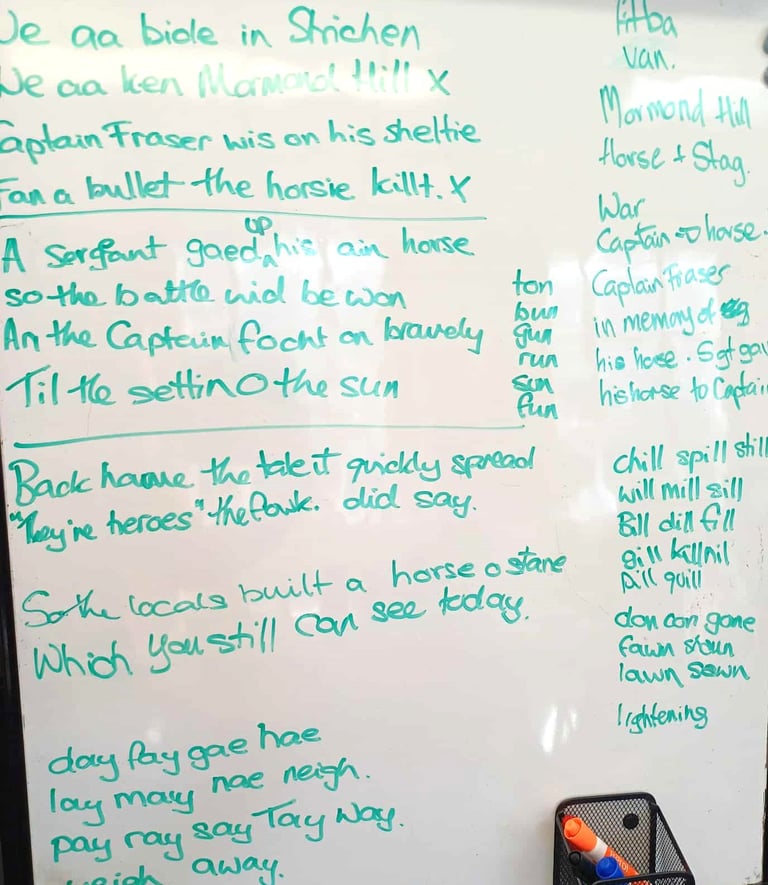 We aa bide in Strichen
We aa ken Mormond Hill x
Captain Fraser wis on his sheltie
Fan a bullet the horsie killt. x
A sergeant gaed up his ain horse
so the battle wid be won
An the Captain focht on bravely
Til the settin O the sun
Back hame the tale it quickly spread
"They're heroes" the fowk. did say.
So the locals built a horse o stane
Which you still can see today.
day fay gae hae
lay may nae neigh.
pay ray say Tay Way.
weigh away.
ton
bun
gun
run
sun
fun
fitba
van.
Mormond Hill
Horse + Stag.
War
Captain → horse.
Captain Fraser
in memory of
his horse. Sgt gav
his horse to Captain
chill spill still
will mill sill
Bill dill fill
gill kill nil
pill quill
don con gone
fawn stoun
lawn sawn
lightening